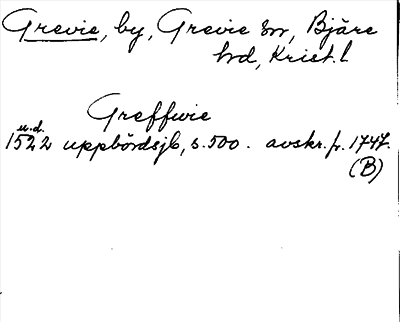 Grevie, by, Grevie sn, Bjäre
hd, Krist. l
Greffwie
u.d.
1522 uppbördsjb, s. 500. avskr. fr. 1747.
(B)